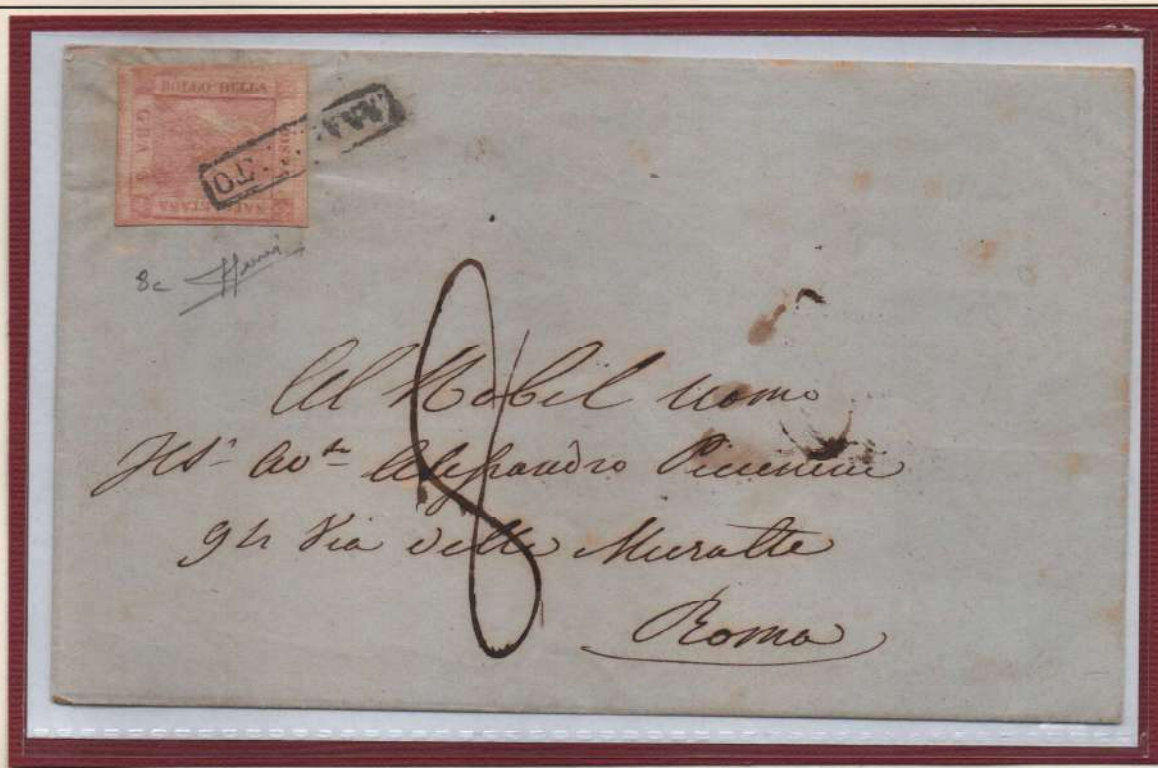 BOLLO DELLA
POSTA
NAPOLETANA
G. 5
8c
8
Al Nobil uomo
Alessandro Piccinini
94 Via delle Muratte
Roma